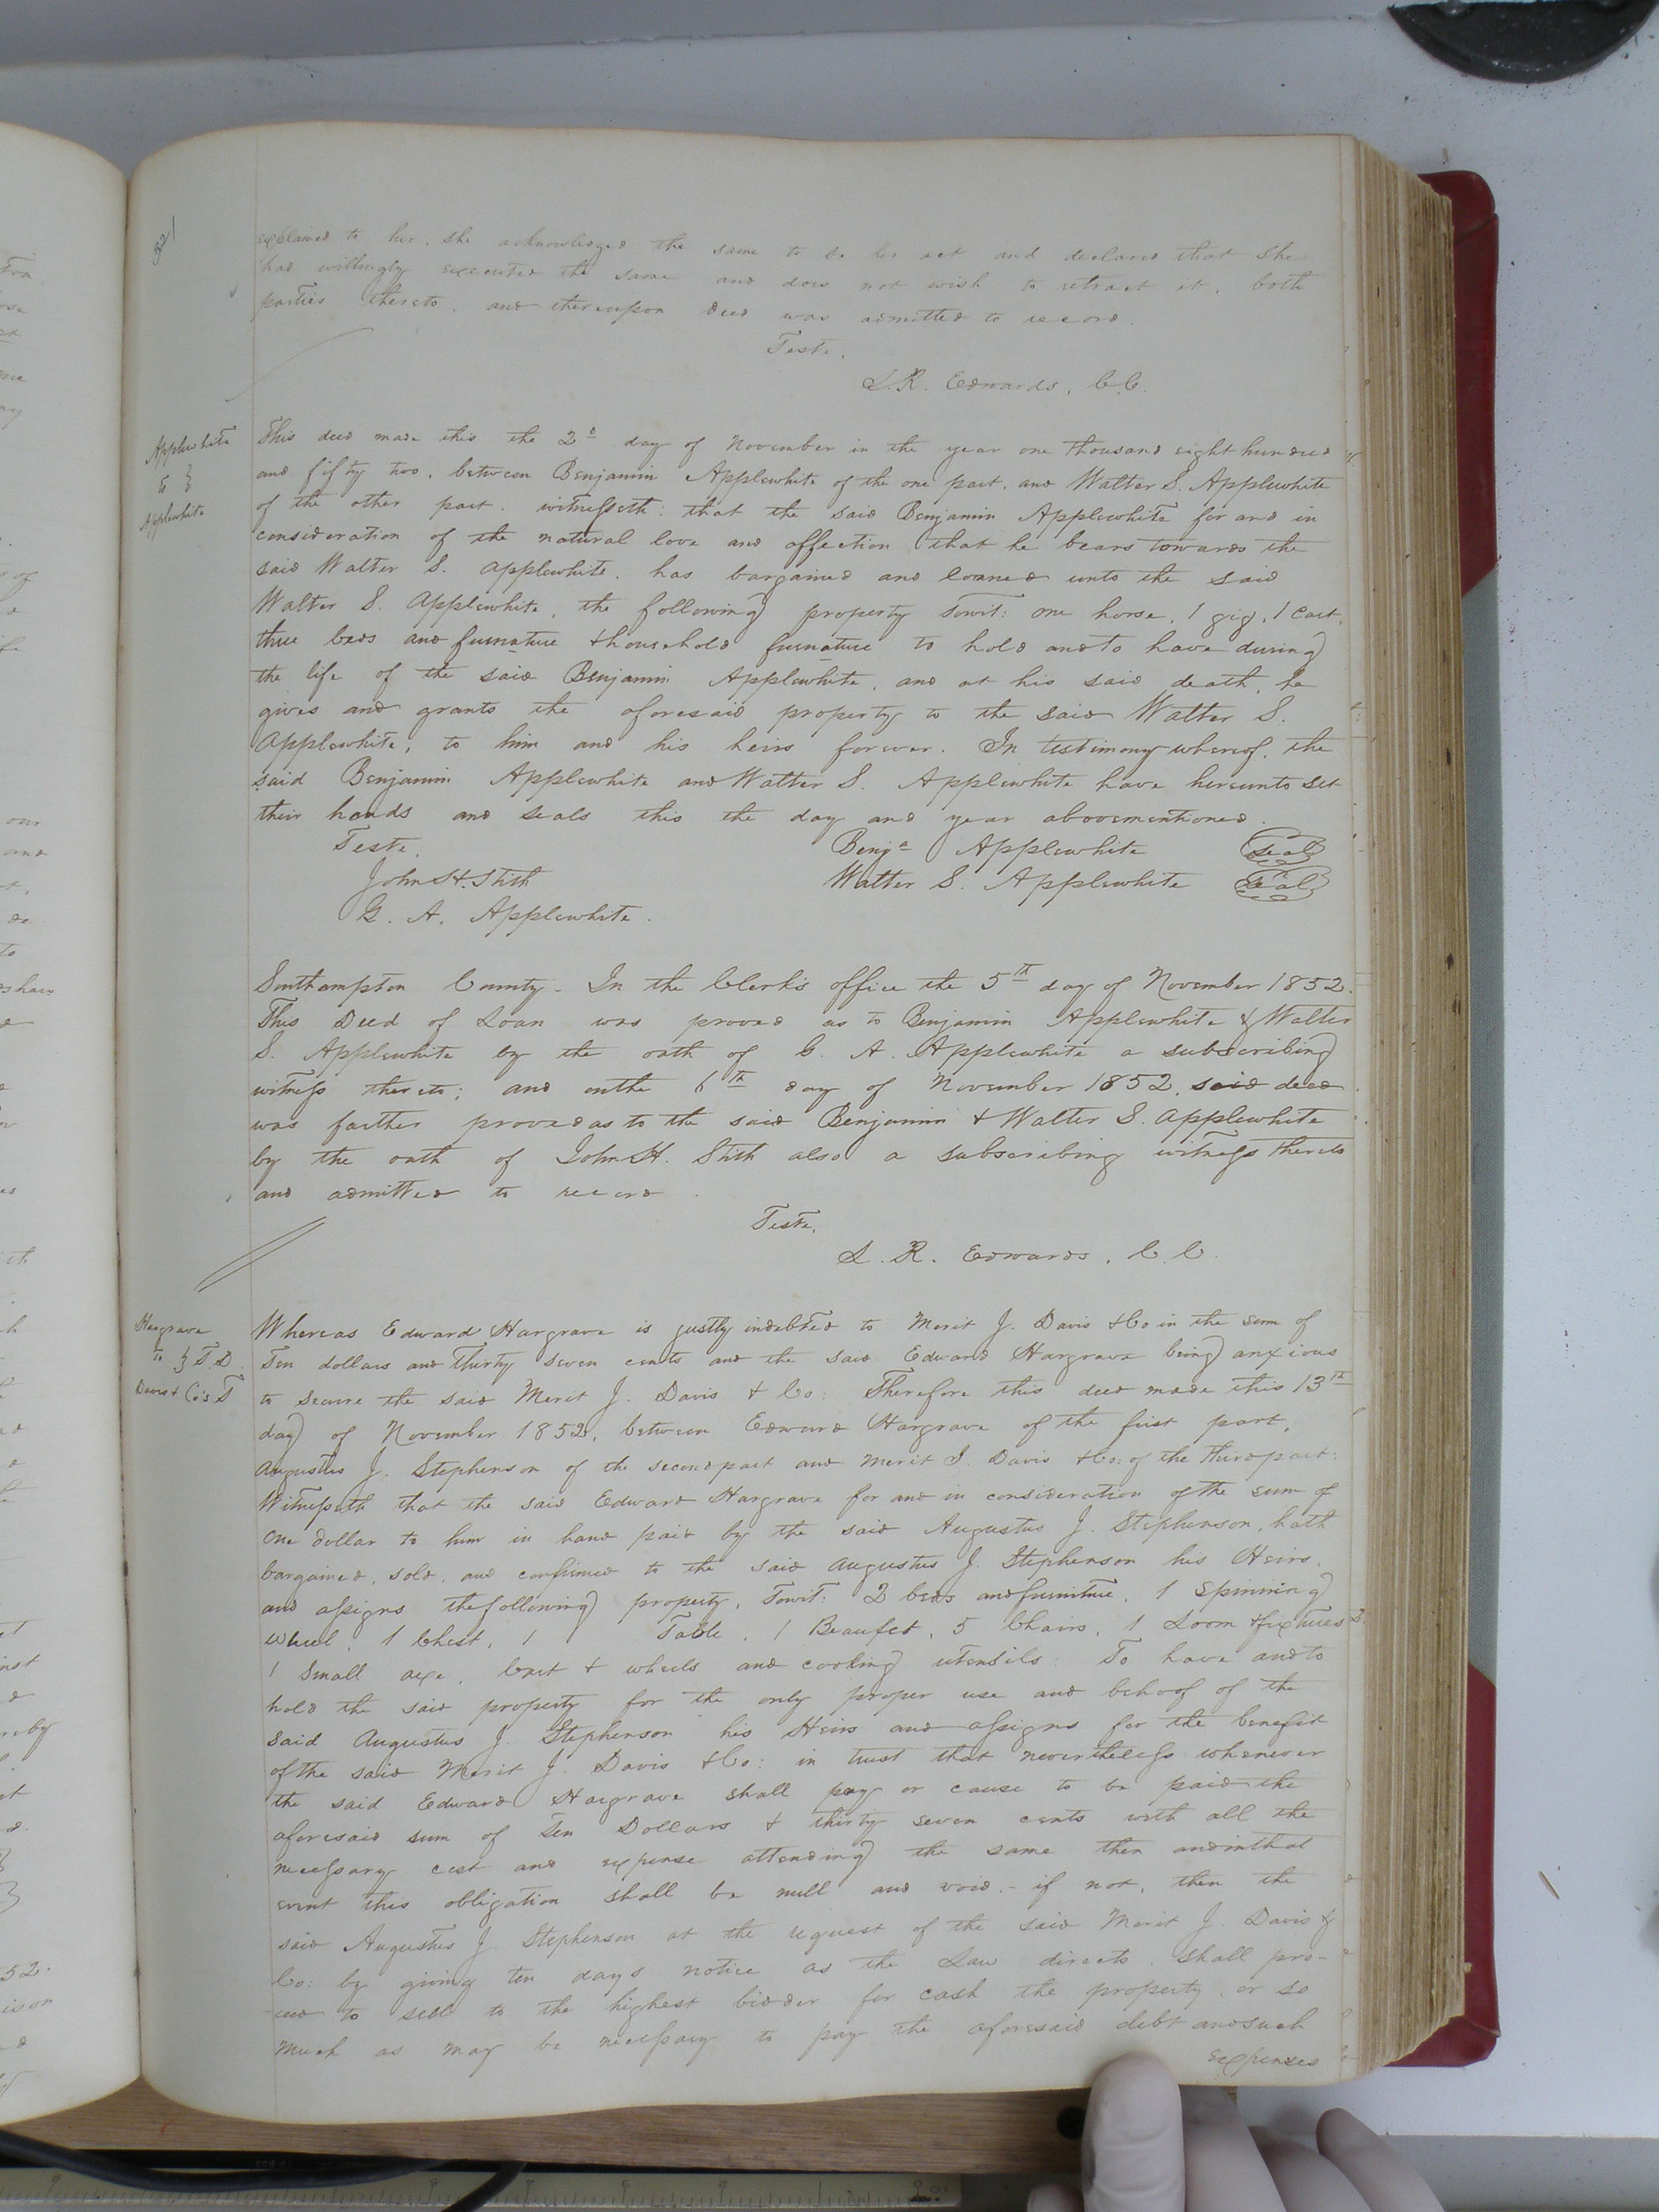 321
explained to her, she acknowledged the same to be her act and declared that she
had willingly executed the same and does not wish to retract it, both
parties thereto, and thereupon deed was admitted to record.
Teste,
L. R. Edwards, C. C.
Applewhite
to }
Applewhite
This deed made this the 2d day of November in the year one thousand eight hundred
and fifty two, between Benjamin Applewhite of the one part, and Walter S. Applewhite
of the other part. witnesseth: that the said Benjamin Applewhite for and in
consideration of the natural love and affection that he bears towards the
said Walter S. Applewhite, has bargained and loaned unto the said
Walter S. Applewhite, the following property towit: one horse, 1 gig, 1 cart,
three beds and furnature & household furnature to hold and to have during
the life of the said Benjamin Applewhite, and at his said death, he
gives and grants the aforesaid property to the said Walter S.
Applewhite, to him and his heirs forever. In testimony whereof, the
said Benjamin Applewhite and Walter S. Applewhite have hereunto set
their hands and seals this the day and year abovementioned.
Teste, Benja Applewhite Seal
John H. Stith Walter S. Applewhite Seal
G. A. Applewhite.
Southampton County. In the Clerk's office the 5th day of November 1852.
This Deed of Loan was proved as to Benjamin Applewhite & Walter
S. Applewhite by the oath of G. A. Applewhite a subscribing
witness thereto; and on the 6th day of November 1852, said deed
was farther proved as to the said Benjamin & Walter S. Applewhite
by the oath of John H. Stith also a subscribing witness thereto
and admitted to record.
Teste,
L. R. Edwards, C. C.
Hargrave
To } T D.
Davis & Co's T
Whereas Edward Hargrave is justly indebted to Merit J. Davis & Co in the sum of
Ten dollars and Thirty seven cents and the said Edward Hargrave being anxious
to secure the said Merit J. Davis & Co: Therefore this deed made this 13th
day of November 1852, between Edward Hargrave of the first part,
Augustus J. Stephenson of the second part and Merit J. Davis & Co: of the third part:
Witnesseth that the said Edward Hargrave for and in consideration of the sum of
One dollar to him in hand paid by the said Augustus J. Stephenson, hath
bargained, sold, and confirmed to the said Augustus J. Stephenson his Heirs,
and assigns the following property, Towit: 2 beds and furniture, 1 Spinning
wheel, 1 Chest, 1 Table, 1 Beaufet, 5 Chairs, 1 Loom & fixtures
1 Small axe, Cart & wheels and cooking utensils: To have and to
hold the said property for the only proper use and behoof of the
said Augustus J. Stephenson his Heirs and assigns for the benefit
of the said Merit J. Davis & Co: in trust that nevertheless whenever
the said Edward Hargrave shall pay or cause to be paid the
aforesaid sum of Ten Dollars & thirty seven cents with all the
necessary cost and expense attending the same then and in that
event this obligation shall be null and void.- if not, then the
said Augustus J. Stephenson at the request of the said Merit J. Davis &
Co: by giving ten days notice as the Law directs, shall pro-
ceed to sell to the highest bidder for cash the property, or so
much as may be necessary to pay the aforesaid debt and such
expenses